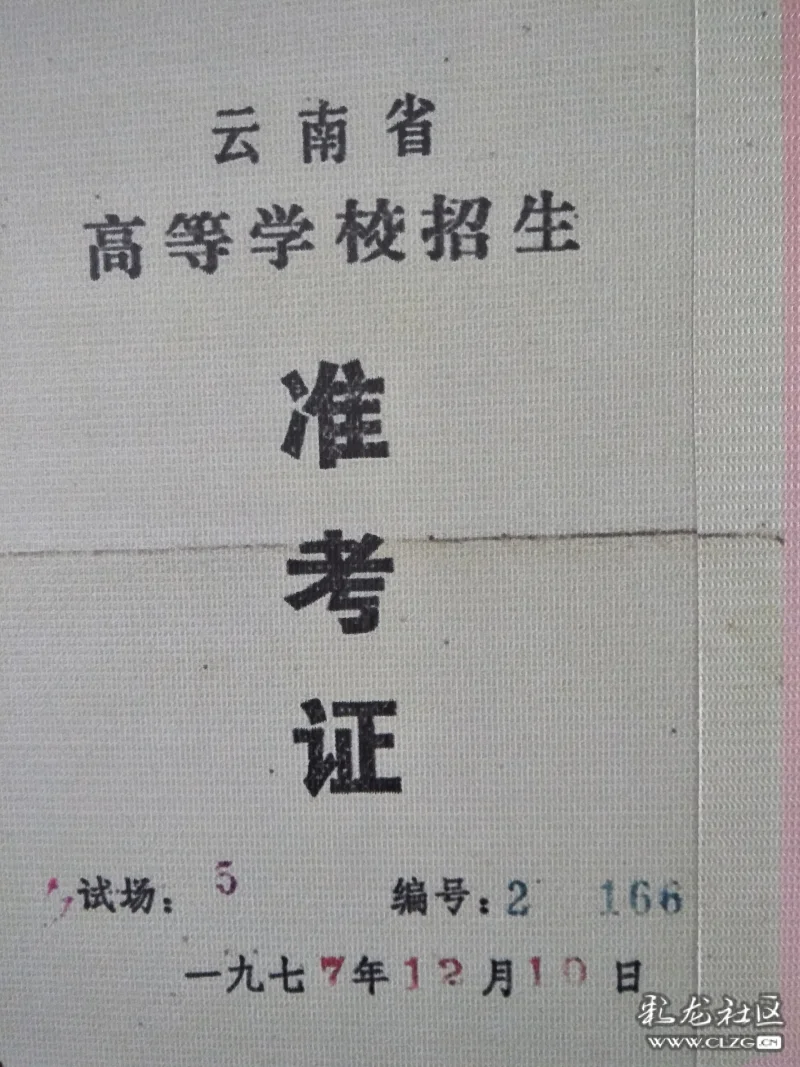 云南省
高等学校招生
准
考
证
试场：5 编号：2 166
一九七7年12月10日
彩龙社区
WWW.CLZG.CN